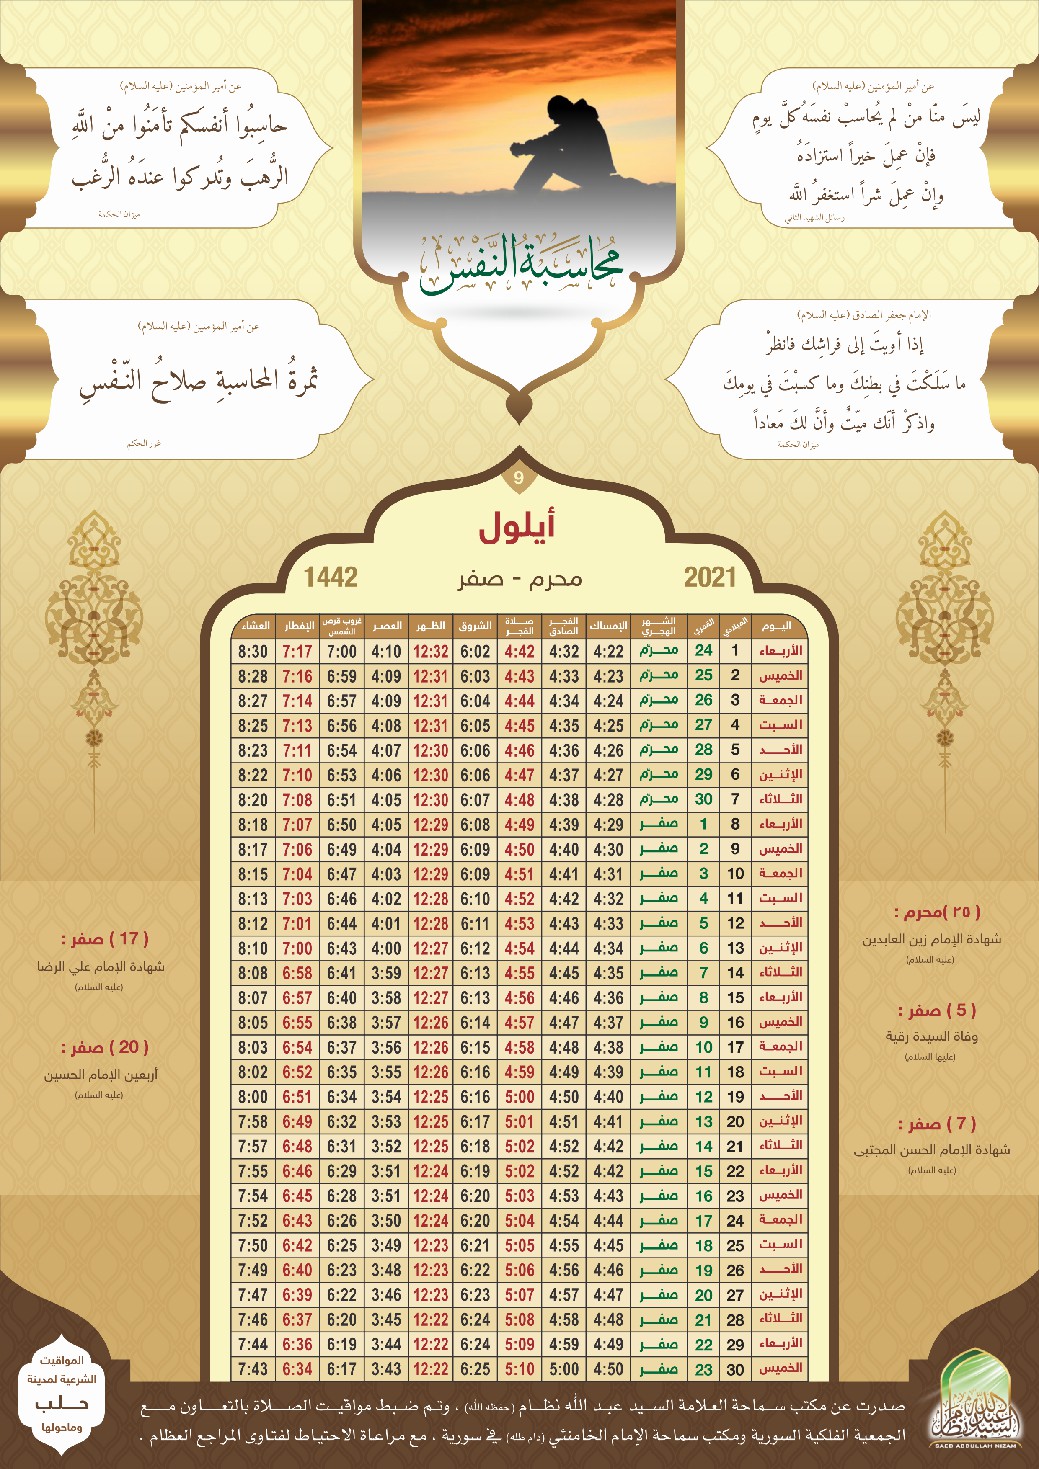 عن أمير المؤمنين (عليه السلام)
ليسَ منّا منْ لم يُحاسبْ نفسَهُ كلَّ يومٍ
فإنْ عمِلَ خيراً استزادَهُ
وإنْ عمِلَ شراً استغفرُ اللّه
رسائل الشهيد الثاني
عن أمير المؤمنين (عليه السلام)
حاسِبُوا أنفسَكم تأمَنُوا منْ اللَّهِ
الرُّهبَ وتُدركوا عندَهُ الرُّغب
ميزان الحكمة
مُحاسَبَةُ النَّفْس
الإمام جعفر الصادق (عليه السلام)
إذا أويتَ إلى فراشِك فانظرْ
ما سَلَكْتَ في بطنِكَ وما كسبْتَ في يومِكَ
واذكرْ أنّك ميّتٌ وأنَّ لكَ مَعاداً
ميزان الحكمة
عن أمير المؤمنين (عليه السلام)
ثمرةُ المحاسبةِ صلاحُ النّفْسِ
غرر الحكم
9
أيلول
2021 محرم - صفر 1442
اليوم الميلادي القمري الشهر الهجري الإمساك الفجر الصادق صلاة الفجر الشروق الظهر العصر غروب قرص الشمس الإفطار العشاء
الأربعاء 1 24 محرم 4:22 4:32 4:42 6:02 12:32 4:10 7:00 7:17 8:30
الخميس 2 25 محرم 4:23 4:33 4:43 6:03 12:31 4:09 6:59 7:16 8:28
الجمعة 3 26 محرم 4:24 4:34 4:44 6:04 12:31 4:09 6:57 7:14 8:27
السبت 4 27 محرم 4:25 4:35 4:45 6:05 12:31 4:08 6:56 7:13 8:25
الأحد 5 28 محرم 4:26 4:36 4:46 6:06 12:30 4:07 6:54 7:11 8:23
الإثنين 6 29 محرم 4:27 4:37 4:47 6:06 12:30 4:06 6:53 7:10 8:22
الثلاثاء 7 30 محرم 4:28 4:38 4:48 6:07 12:30 4:05 6:51 7:08 8:20
الأربعاء 8 1 صفر 4:29 4:39 4:49 6:08 12:29 4:05 6:50 7:07 8:18
الخميس 9 2 صفر 4:30 4:40 4:50 6:09 12:29 4:04 6:49 7:06 8:17
الجمعة 10 3 صفر 4:31 4:41 4:51 6:09 12:29 4:03 6:47 7:04 8:15
السبت 11 4 صفر 4:32 4:42 4:52 6:10 12:28 4:02 6:46 7:03 8:13
الأحد 12 5 صفر 4:33 4:43 4:53 6:11 12:28 4:01 6:44 7:01 8:12
الإثنين 13 6 صفر 4:34 4:44 4:54 6:12 12:27 4:00 6:43 7:00 8:10
الثلاثاء 14 7 صفر 4:35 4:45 4:55 6:13 12:27 3:59 6:41 6:58 8:08
الأربعاء 15 8 صفر 4:36 4:46 4:56 6:13 12:27 3:58 6:40 6:57 8:07
الخميس 16 9 صفر 4:37 4:47 4:57 6:14 12:26 3:57 6:38 6:55 8:05
الجمعة 17 10 صفر 4:38 4:48 4:58 6:15 12:26 3:56 6:37 6:54 8:03
السبت 18 11 صفر 4:39 4:49 4:59 6:16 12:26 3:55 6:35 6:52 8:02
الأحد 19 12 صفر 4:40 4:50 5:00 6:16 12:25 3:54 6:34 6:51 8:00
الإثنين 20 13 صفر 4:41 4:51 5:01 6:17 12:25 3:53 6:32 6:49 7:58
الثلاثاء 21 14 صفر 4:42 4:52 5:02 6:18 12:25 3:52 6:31 6:48 7:57
الأربعاء 22 15 صفر 4:42 4:52 5:02 6:19 12:24 3:51 6:29 6:46 7:55
الخميس 23 16 صفر 4:43 4:53 5:03 6:20 12:24 3:51 6:28 6:45 7:54
الجمعة 24 17 صفر 4:44 4:54 5:04 6:20 12:24 3:50 6:26 6:43 7:52
السبت 25 18 صفر 4:45 4:55 5:05 6:21 12:23 3:49 6:25 6:42 7:50
الأحد 26 19 صفر 4:46 4:56 5:06 6:22 12:23 3:48 6:23 6:40 7:49
الإثنين 27 20 صفر 4:47 4:57 5:07 6:23 12:23 3:46 6:22 6:39 7:47
الثلاثاء 28 21 صفر 4:48 4:58 5:08 6:24 12:22 3:45 6:20 6:37 7:46
الأربعاء 29 22 صفر 4:49 4:59 5:09 6:24 12:22 3:44 6:19 6:36 7:44
الخميس 30 23 صفر 4:50 5:00 5:10 6:25 12:22 3:43 6:17 6:34 7:43
(٢٥) محرم :
شهادة الإمام زين العابدين
(عليه السلام)
(5) صفر :
وفاة السيدة رقية
(عليها السلام)
(7) صفر :
شهادة الإمام الحسن المجتبى
(عليه السلام)
(17) صفر :
شهادة الإمام علي الرضا
(عليه السلام)
(20) صفر :
أربعين الإمام الحسين
(عليه السلام)
المواقيت
الشرعية لمدينة
حلب
وماحولها
صدرت عن مكتب سماحة العلامة السيد عبد الله نظام (حفظه الله) ، وتم ضبط مواقيت الصلاة بالتعاون مع
الجمعية الفلكية السورية ومكتب سماحة الإمام الخامنئي (دام ظله) في سورية ، مع مراعاة الاحتياط لفتاوى المراجع العظام .
السيد عبد الله نظام
SAED ABDULLAH NIZAM